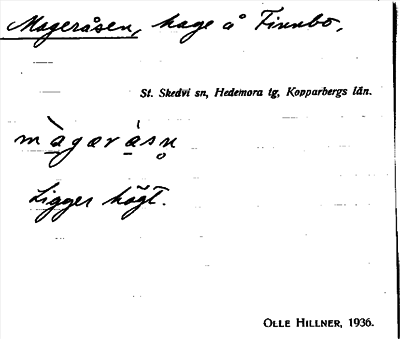 Mageråsen, hage å Finnbo.
St. Skedvi sn, Hedemora tg, Kopparbergs län.
m̀a̲gæràsn̥
Ligger högt.
OLLE HILLNER, 1936.